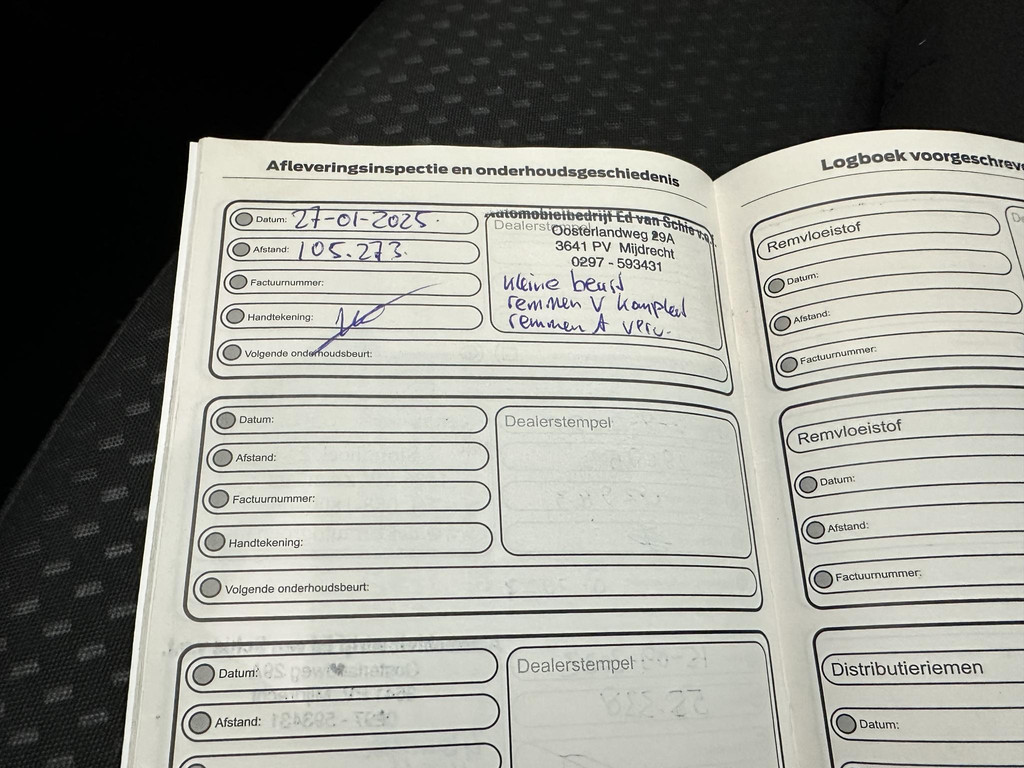 Afleveringsinspectie en onderhoudsgeschiedenis
Datum: 27-01-2025.
Afstand: 105.273.
Factuurnummer:
Handtekening:
Volgende onderhoudsbeurt:
Dealerstempel
Automobielbedrijf Ed van Schie v.o.f.
Oosterlandweg 29A
3641 PV Mijdrecht
0297 - 593431
kleine beurt
remmen V kompleet
remmen A verv.
Datum:
Afstand:
Factuurnummer:
Handtekening:
Volgende onderhoudsbeurt:
Dealerstempel
Datum:
Afstand:
Dealerstempel
Logboek voorgeschreve
Remvloeistof
Datum:
Afstand:
Factuurnummer:
Remvloeistof
Datum:
Afstand:
Factuurnummer:
Distributieriemen
Datum: